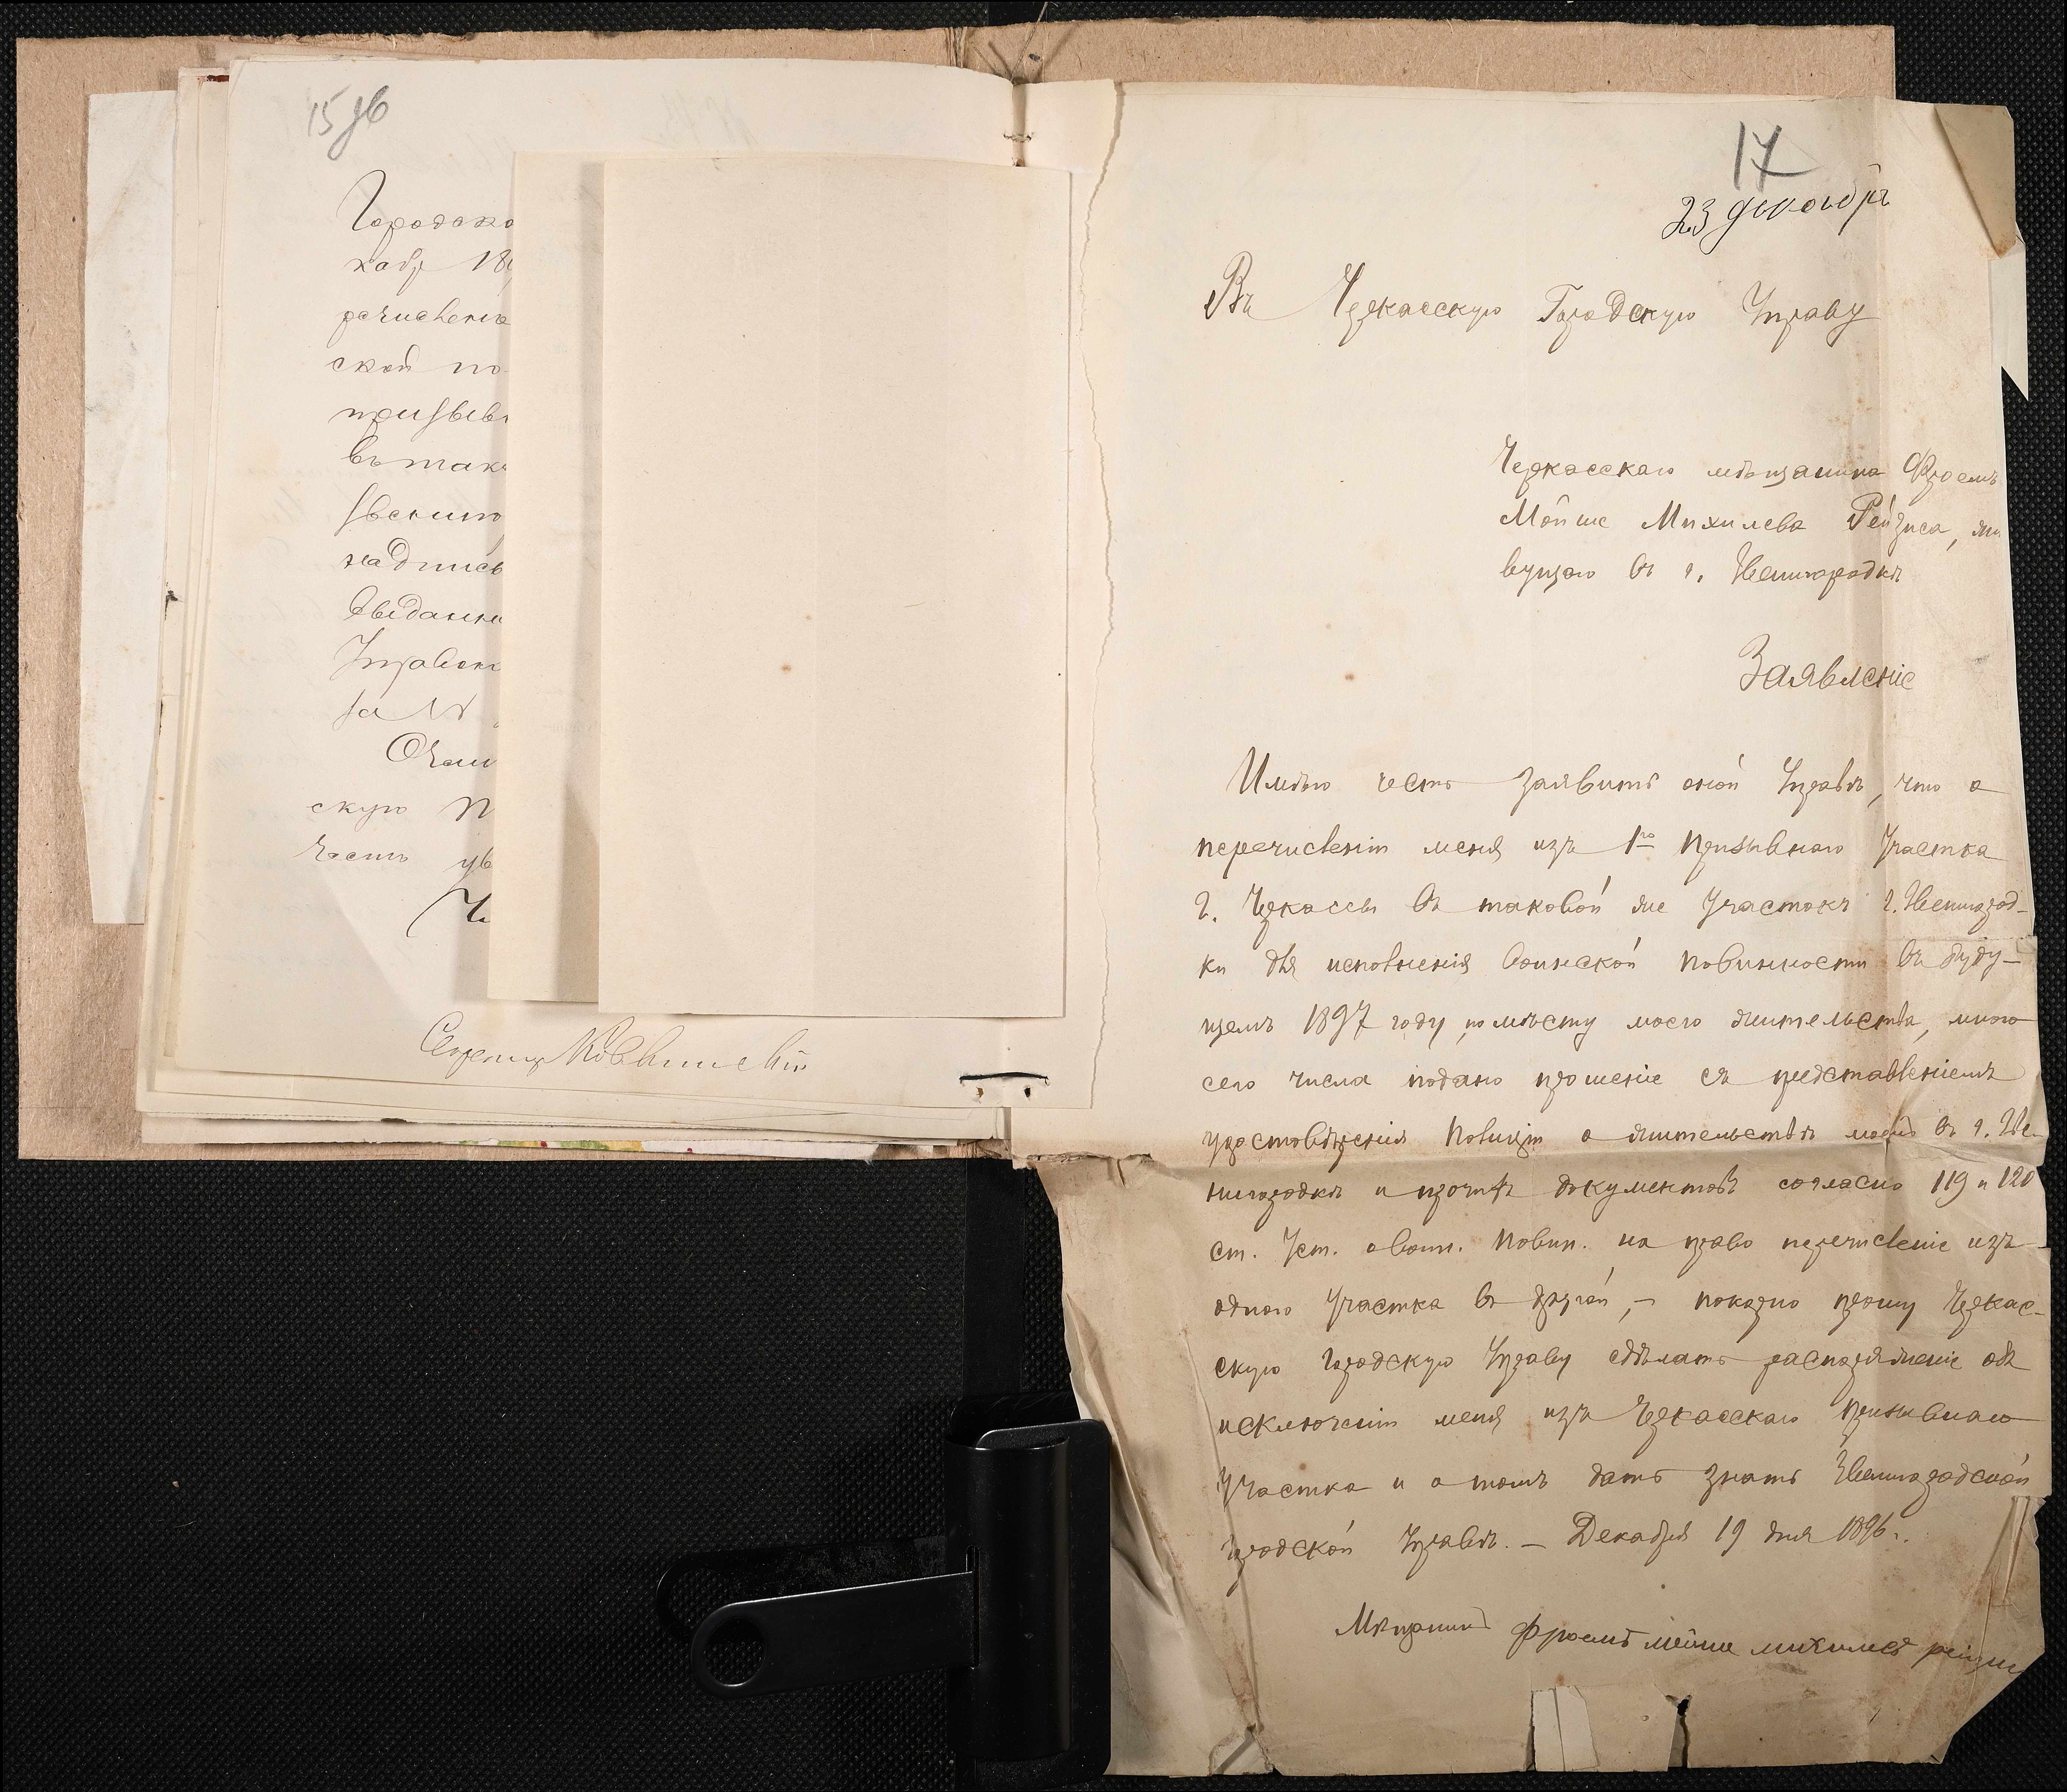 15 об
Городско
кабр 18
речисленіе
ской по
призыв
въ так
звениго
надпись
Свѣдѣни
Управ
за №
скую П
Часть ув
Секретарь
17
23 декабрь
Въ Черкасскую Городскую Управу
Черкасскаго мѣщанина Фроемъ
Мойше Михилева Рейзиса, жи
вущаго въ г. Звенигородкѣ
Заявленіе
Имѣю честь заявить оной Управѣ, что о
перечисленіи меня изъ 1го Призывнаго Участка
г. Черкассы въ таковой же Участокъ г. Звенигород-
ки для исполненія воинской повинности въ буду-
щемъ 1897 году, по мѣсту моего жительства, мною
сего числа подано прошеніе съ представленіемъ
удостовѣренія Полиціи о жительствѣ моемъ въ г. Зве-
нигородкѣ и прочихъ документовъ согласно 119 и 120
ст. Уст. о воин. повин. на право перечисленіе изъ
одного Участка въ другой, – покорно прошу Черкас-
скую Городскую Управу сдѣлать распоряженіе объ
исключеніи меня изъ Черкасскаго призывнаго
Участка и о томъ дать знать Звенигородской
городской Управѣ. – Декабря 19 дня 1896 г.
Мѣщанинъ Фроемъ мойше михилевъ рейзис